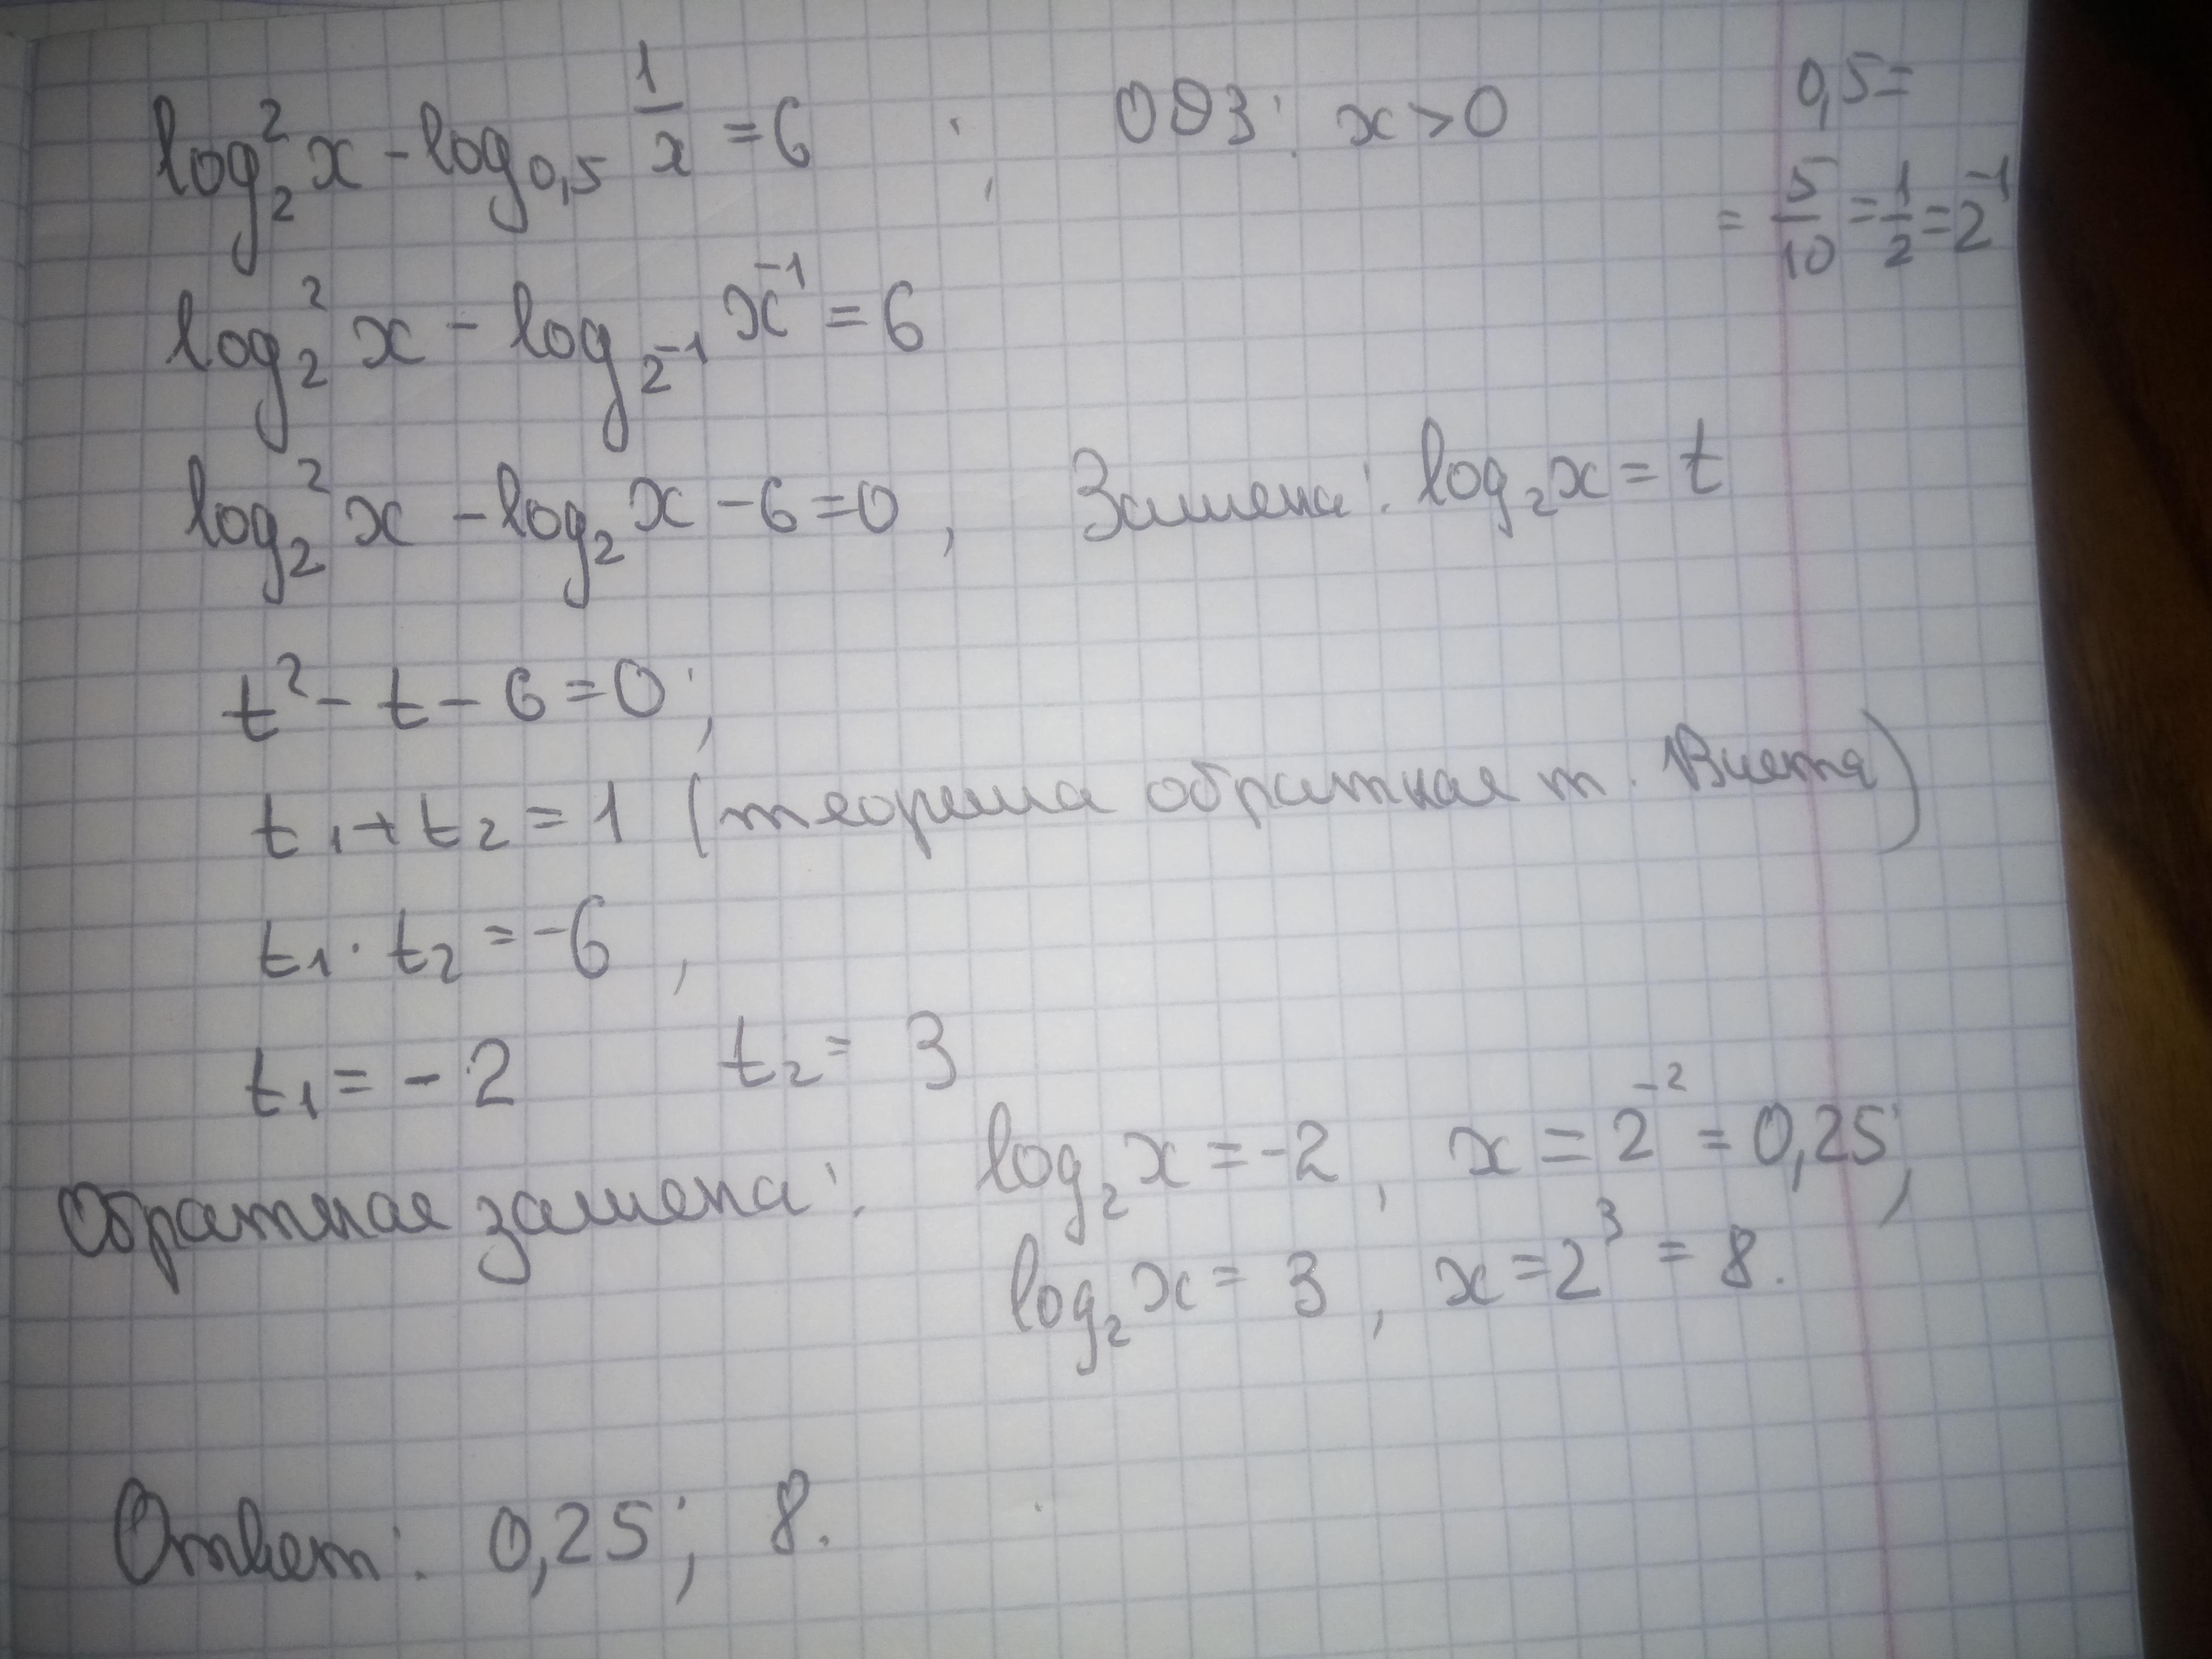 log₂²x - log₀,₅ 1/x = 6 ; ОДЗ: x > 0
0,5 =
= 5/10 = 1/2 = 2⁻¹
log₂²x - log₂₋₁ x⁻¹ = 6
log₂²x - log₂x - 6 = 0, Замена: log₂x = t
t² - t - 6 = 0;
t₁ + t₂ = 1 (теорема обратная т. Виета)
t₁ · t₂ = -6,
t₁ = -2 t₂ = 3
Обратная замена: log₂x = -2, x = 2⁻² = 0,25;
log₂x = 3, x = 2³ = 8.
Ответ: 0,25; 8.